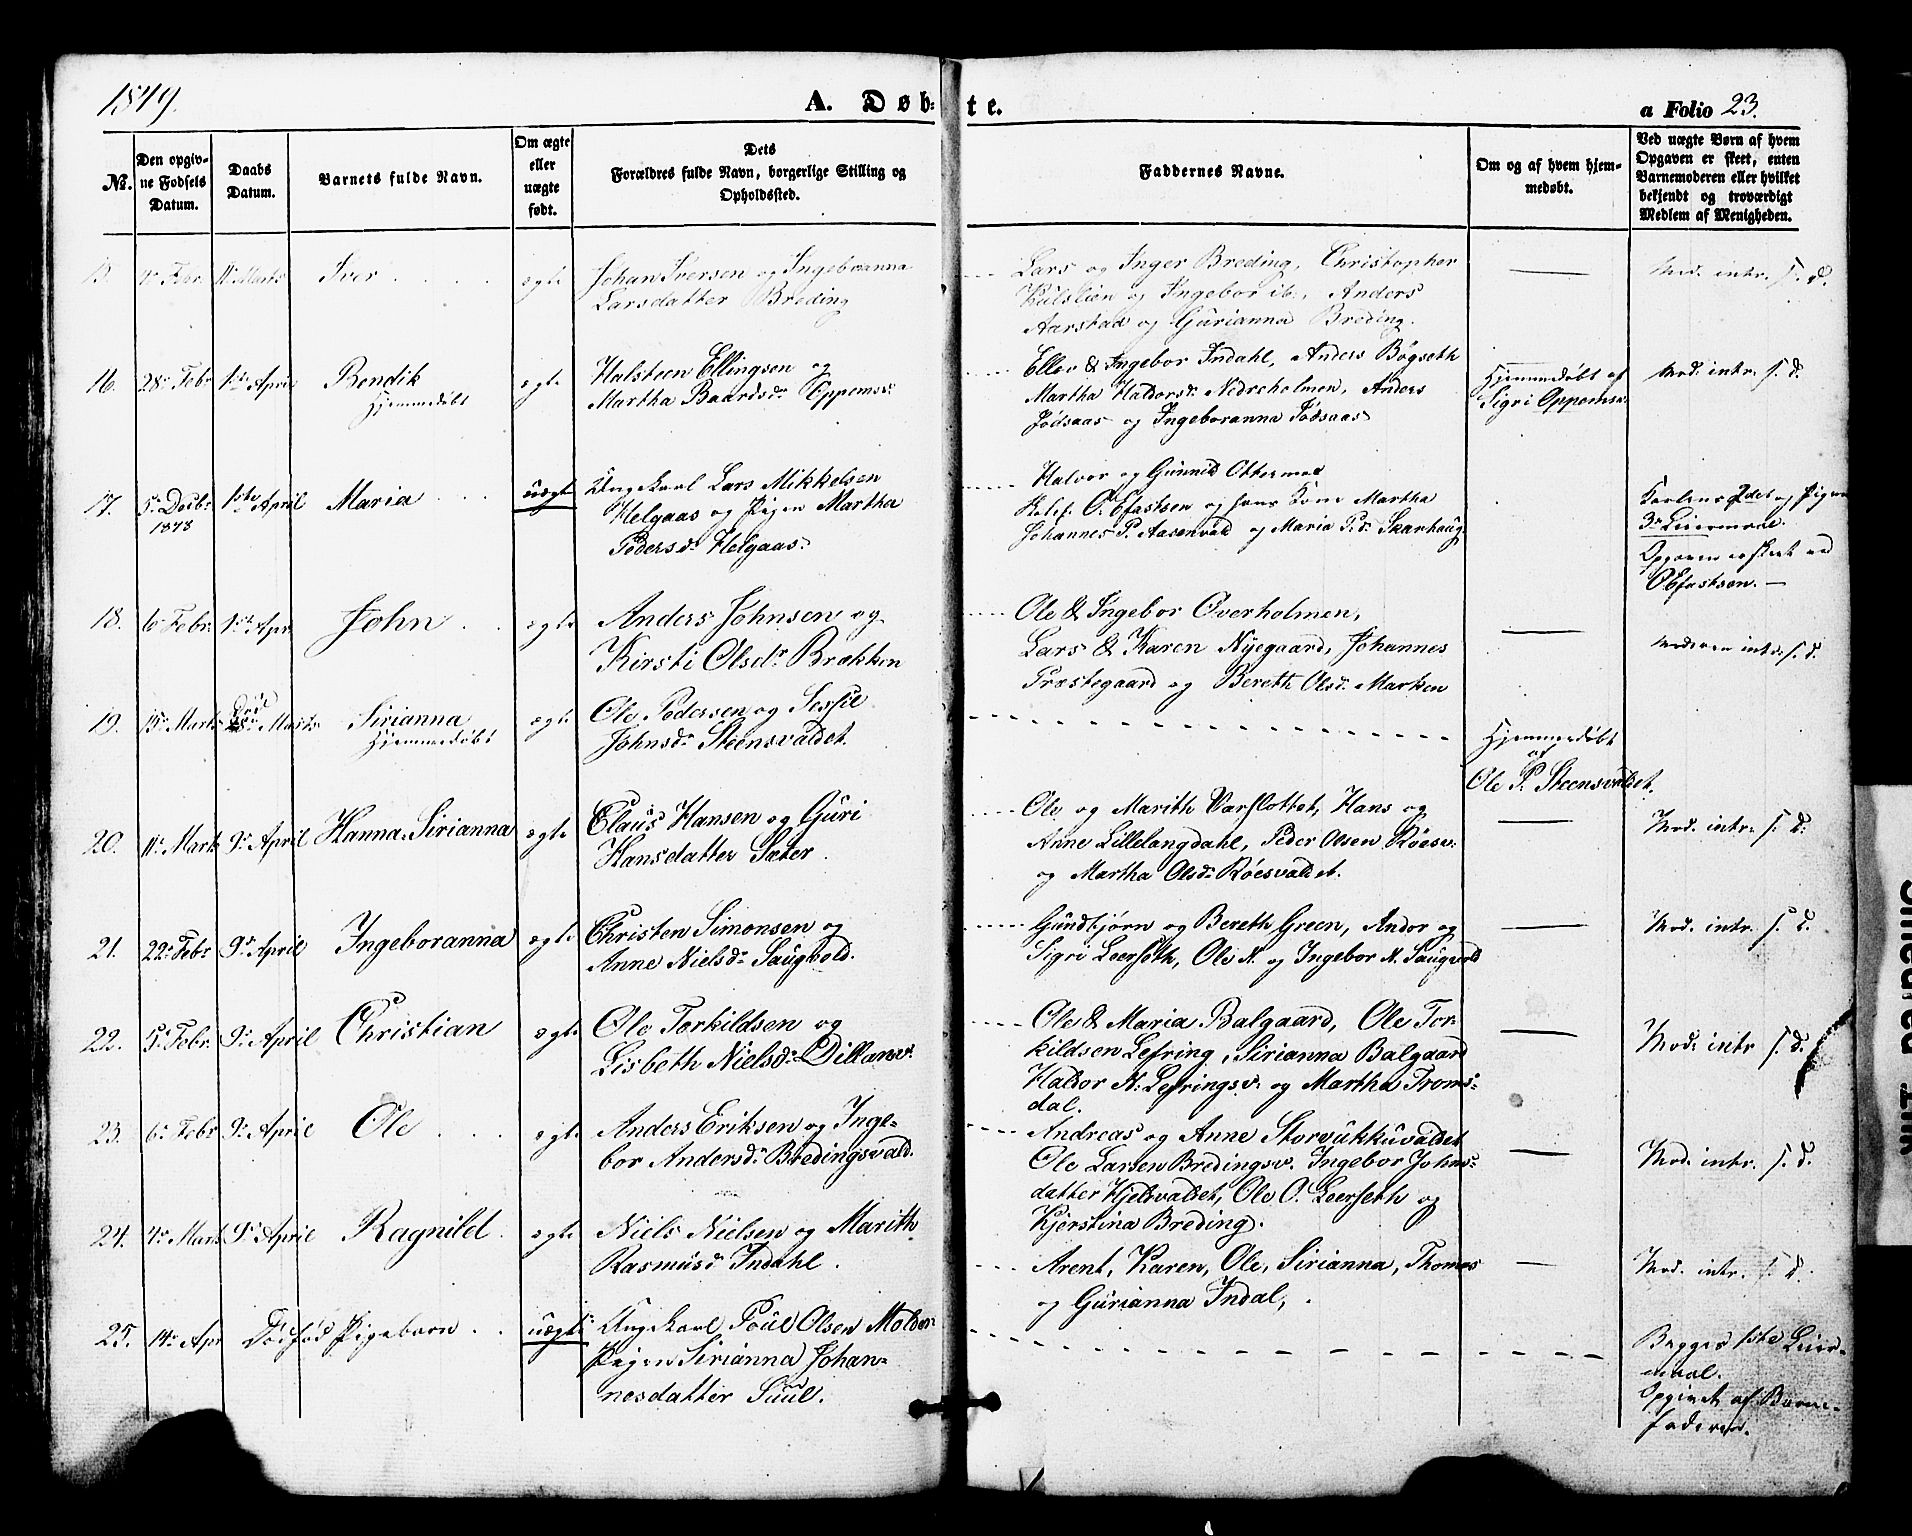 1849.
A. Døb-
te.
a Folio 23.
No.
Den opgiv-
ne Fødsels
Datum.
Daabs
Datum.
Barnets fulde Navn.
Om ægte
eller
uægte
født.
Dets
Forældres fulde Navn, borgerlige Stilling og
Opholdssted.
Faddernes Navne.
Om og af hvem hjem-
medøbt.
Ved uægte Børn af hvem
Opgaven er skeet, enten
Barnemoderen eller hvilket
bekjendt og troværdigt
Medlem af Menigheden.
15. 4de Febr. Marts Iver ægte Johan Iversen og Ingeboranna
Larsdatter Breding
Lars og Inger Breding, Christopher
Kulslien og Ingebor ib:, Anders
Aarstad og Gurianna Breding.
— Mod. intr. s. D.
16. 28de Febr 1ste April Bendik
Hjemmedøbt
ægte Halsteen Ellingsen og
Martha Baardsdr Oppemsv:
Ellev & Ingebor Indahl, Anders Bøgseth
Martha Haldorsdr Nedreholmen, Anders
Jødsaas og Ingeboranna Jødsaas
Hjemmedøbt af
Sigri Oppemsv.
Mod. intr. s. D.
17. 5te Decbr
1848
1ste April Maria uægte Ungkarl Lars Mikkelsen
Helgaas og Pigen Martha
Pedersdr Helgaas.
Halvor og Gunnild Ottermoe
O. Efastsen og hans Kone Martha
Johannes P. Aasenvald og Maria P.dr Skarhaug
Karlens 2det og Pigens
3die Leiermaal.
Opgaven er skeet ved
O Efastsen. —
18. 6te Febr: 1ste Apr. John ægte Anders Johnsen og
Kirsti Olsdr Brækken
Ole & Ingebor Overholmen,
Lars & Karen Nyegaard, Johannes
Præstegaard og Bereth Olsdr Marken
— Moderen intr: s. D.
19. 15de Marts Marts Sirianna
Hjemmedøbt
ægte Ole Pedersen og Sessil
Johnsdr Steensvaldet.
Hjemmedøbt
af
Ole P. Steensvaldet.
20. 11te Marts 9de April Hanna Sirianna ægte Claus Hansen og Guri
Hansdatter Sæter.
Ole og Marith Varslottet, Hans og
Anne Lillelangdahl, Peder Olsen Røesv:
og Martha Olsdr Røesvaldet.
— Mod. intr. s. D.
21. 22de Febr 9de April Ingeboranna ægte Christen Simonsen og
Anne Nielsdr Saugvold.
Gundbjørn og Bereth Green, Andor og
Sigri Leerseth, Ole N. og Ingebor N. Saugvold
— Mod. intr. s. D.
22. 5te Febr. 9de April Christian ægte Ole Torkildsen og
Lisbeth Nielsdr Dillanv.
Ole & Maria Balgaard, Ole Tor-
kildsen Lefring, Sirianna Balgaard
Haldor N: Lefringsv: og Martha Troms-
dal.
— Mod. intr. s. D.
23. 6te Febr 9de April Ole ægte Anders Eriksen og Inge-
bor Andersdr Bredingsvald.
Andreas og Anne Storvukkuvaldet
Ole Larsen Bredingsv. Ingebor Johns-
datter Hjelsvaldet, Ole O. Leerseth og
Kjerstina Breding.
— Mod. intr. s. D.
24. 4de Marts 9de April Ragnild ægte Niels Nielsen og Marith
Rasmusdr Indahl.
Arent, Karen, Ole, Sirianna, Thomas
og Gurianna Indal,
— Mod. intr. s. D.
25. 14de Apr Dødfød Pigebarn uægte Ungkarl Poul Olsen Molden
Pigen Sirianna Johan-
nesdatter Suul.
Begges 1ste Leier-
maal.
Opgivet af Barne-
faderen.